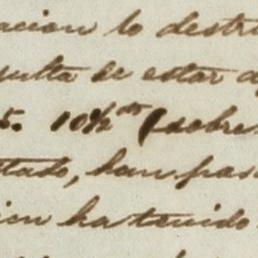 acion lo destr
sulta de estar d
5. 10½ cto (sobre
tado, han pas
ion ha tenido